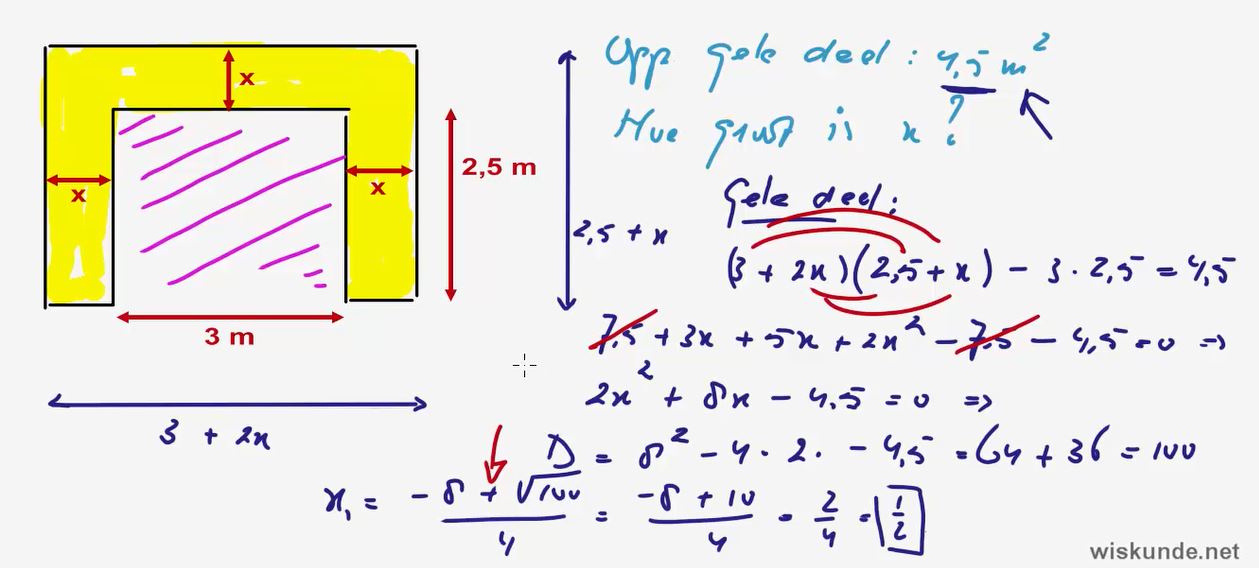 x
x
x
2,5 m
3 m
3 + 2x
2,5 + x
Opp gele deel: 4,5 m²
Hoe groot is x?
Gele deel:
(3 + 2x)(2,5 + x) - 3 · 2,5 = 4,5
7,5 + 3x + 5x + 2x² - 7,5 - 4,5 = 0 ⇒
2x² + 8x - 4,5 = 0 ⇒
D = 8² - 4 · 2 · - 4,5 = 64 + 36 = 100
x₁ = (-8 + √100)/4 = (-8 + 10)/4 = 2/4 = 1/2
wiskunde.net